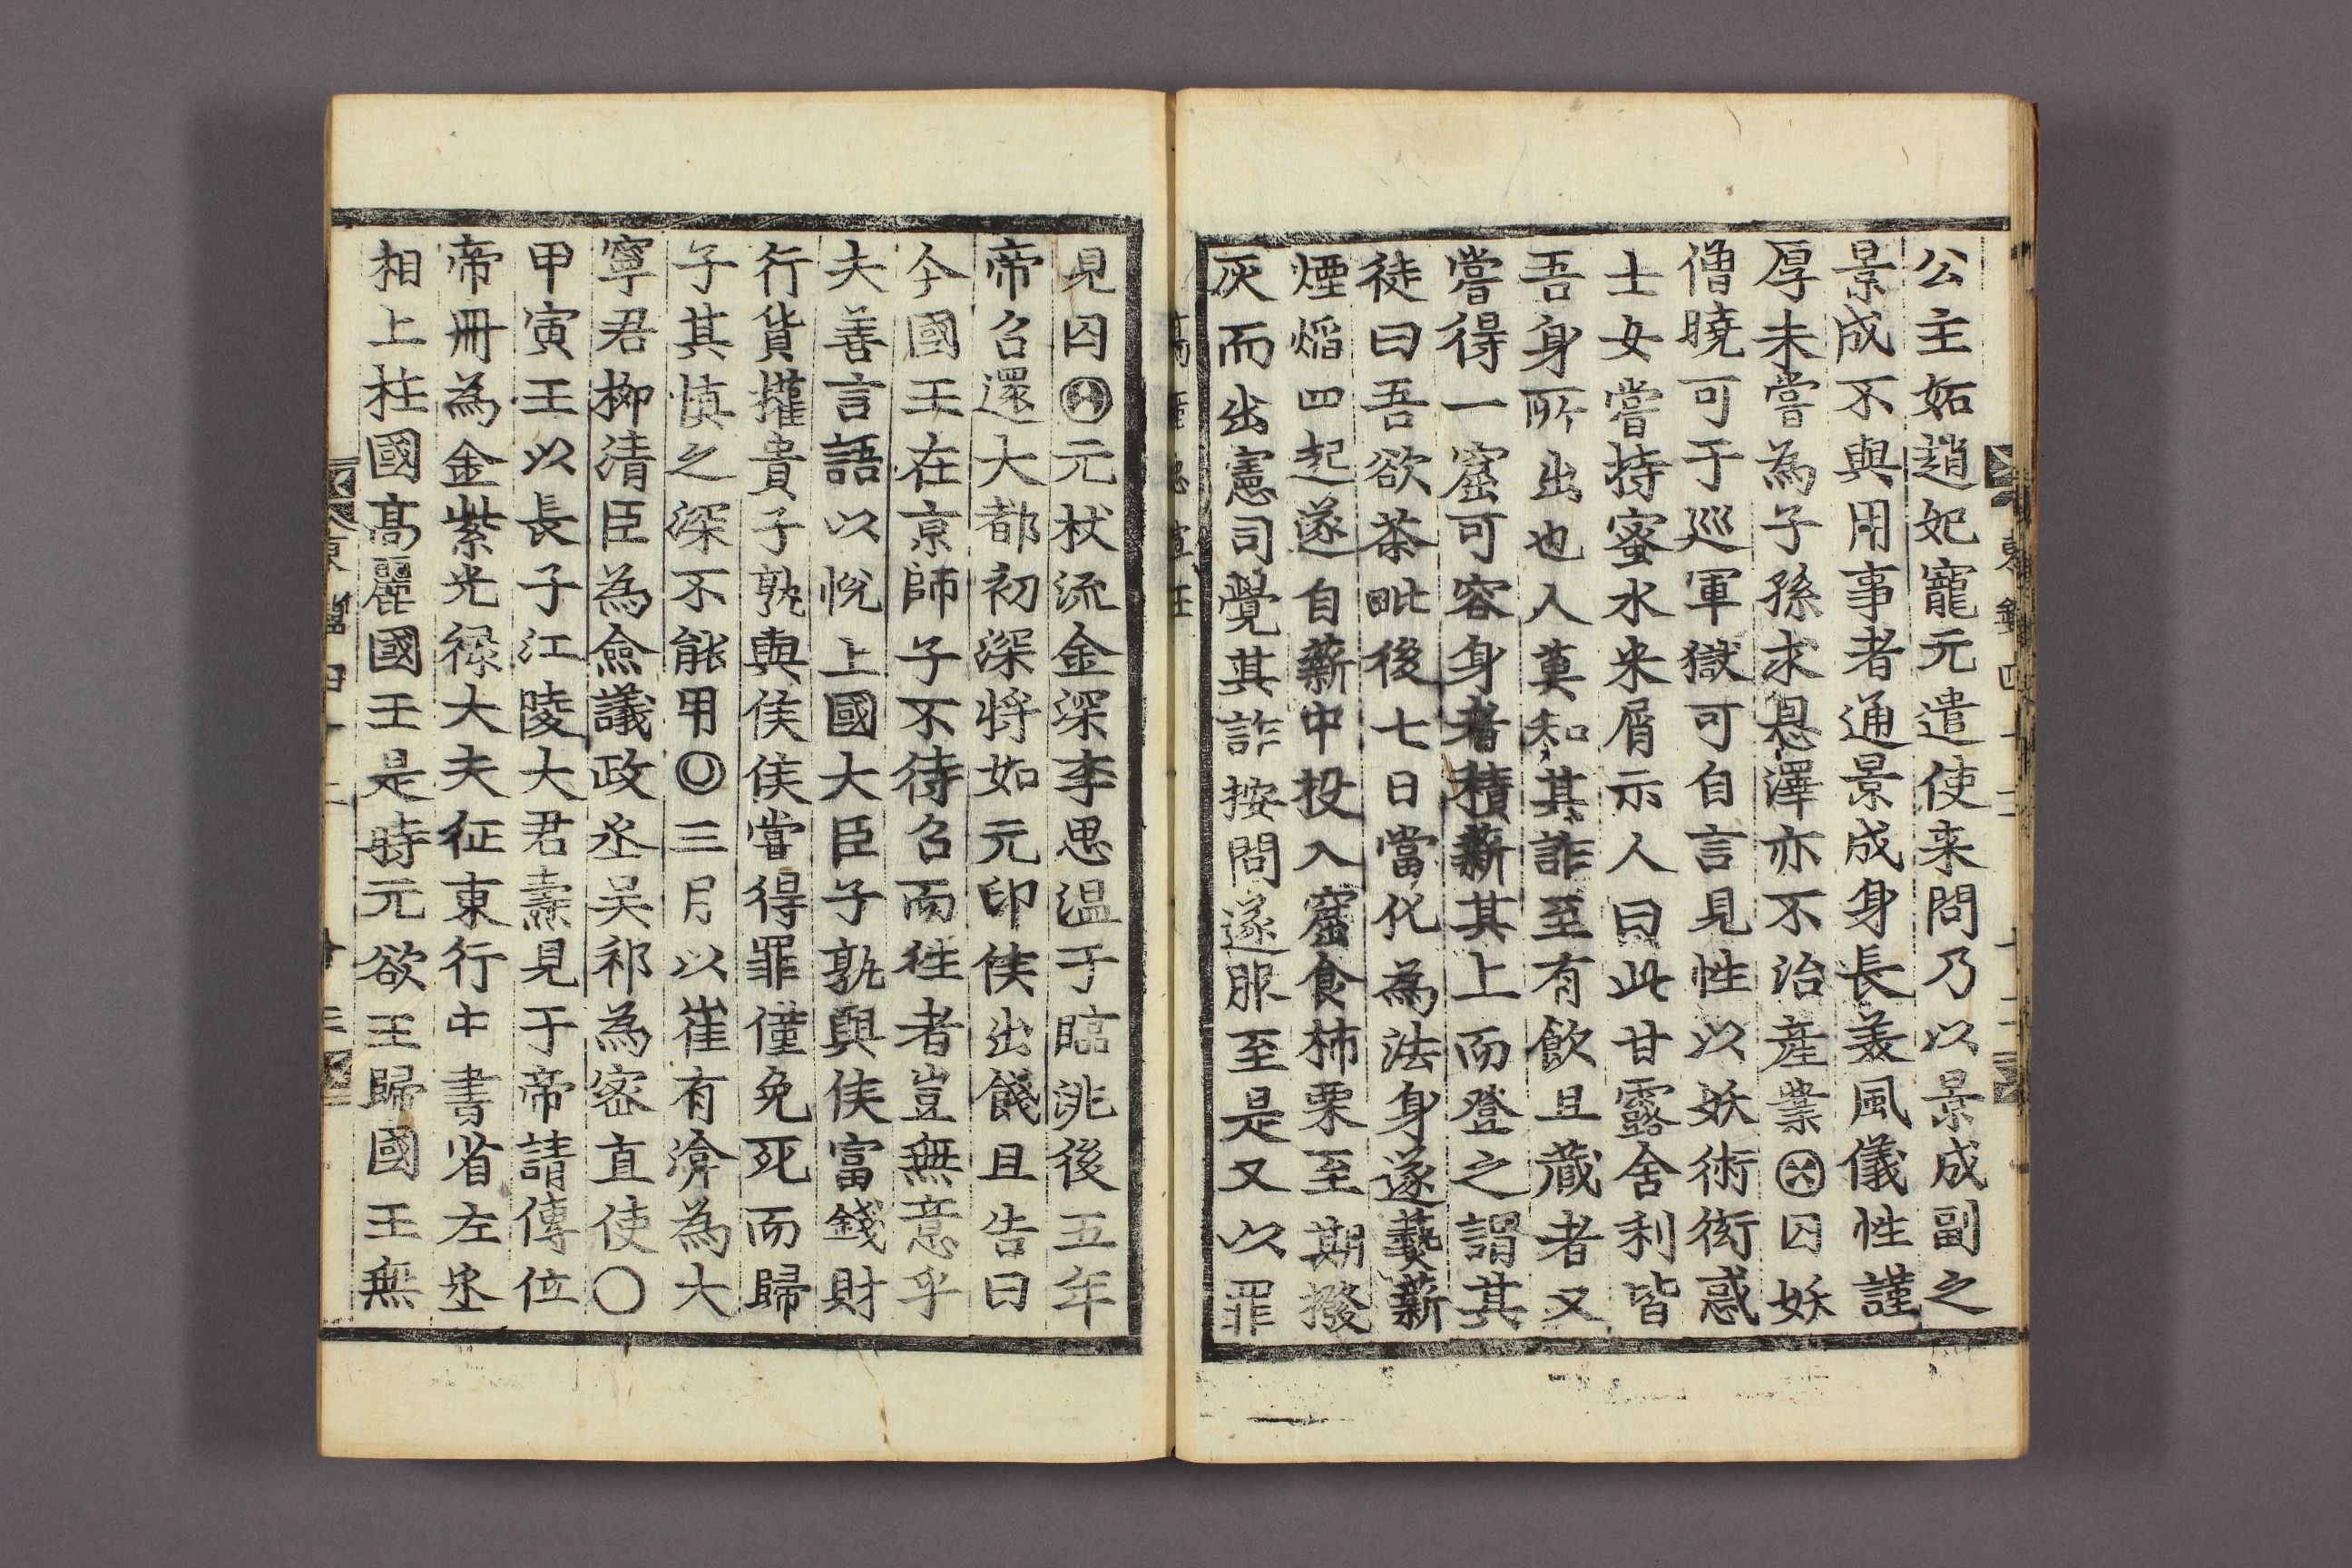 公主妬趙妃寵元遣使来問乃以景成副之
景成不與用事者通景成身長美風儀性謹
厚未嘗為子孫求恩澤亦不治産業囚妖
僧曉可于巡軍獄可自言見性以妖術衒惑
士女嘗持蜜水米屑示人曰此甘露舍利皆
吾身所出也人莫知其詐至有飲且蔵者又
嘗得一窟可容身者積薪其上而登之謂其
徒曰吾欲茶毗後七日當化為法身遂爇薪
煙焰四起遂自薪中投入窟食柿栗至期撥
灰而出憲司覺其詐按問遂服至是又以罪
見囚元杖流金深李思温于臨洮後五年
帝召還大都初深将如元印侯出餞且告曰
今國王在京師子不待召而往者豈無意乎
夫善言語以悅上國大臣子孰與侯富錢財
行貨權貴子孰與侯侯嘗得罪僅免死而歸
子其慎之深不能用○三月以崔有渰為大
寧君柳清臣為僉議政丞吴祁為密直使○
甲寅王以長子江陵大君燾見于帝請傳位
帝冊為金紫光禄大夫征東行中書省左丞
相上柱國高麗國王是時元欲王歸國王無